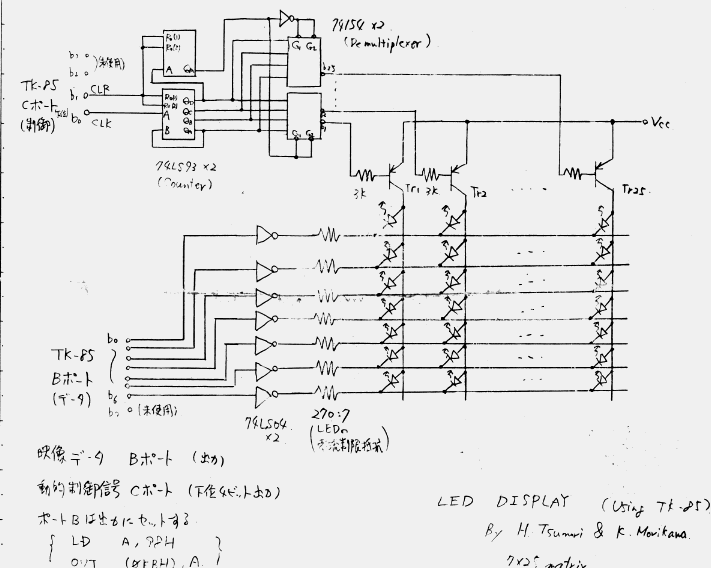 74154 ×2
(Demultiplexer)
R₀(1)
R₀(2)
A
QA
G₁ G₂
b₃ (未使用)
b₂
TK-85
Cポート
(制御)
b₁ CLR
b₀ CLK
R₀(1)
R₀(2)
A
B
QD
QC
QB
QA
G₁ G₂
74LS93 ×2
(Counter)
Vcc
3K
Tr1
3K
Tr2
Tr25
TK-85
Bポート
(データ)
b₀
b₆
b₇ (未使用)
74LS04
×2
270×7
(LEDの
電流制限抵抗)
映像データ Bポート (出力)
動的制御信号 Cポート (下位4ビット出力)
ポートBは出力にセットする
LD A,
OUT , A
LED DISPLAY (Using TK-85)
By H. Tsumori & K. Morikawa
7×25 matrix